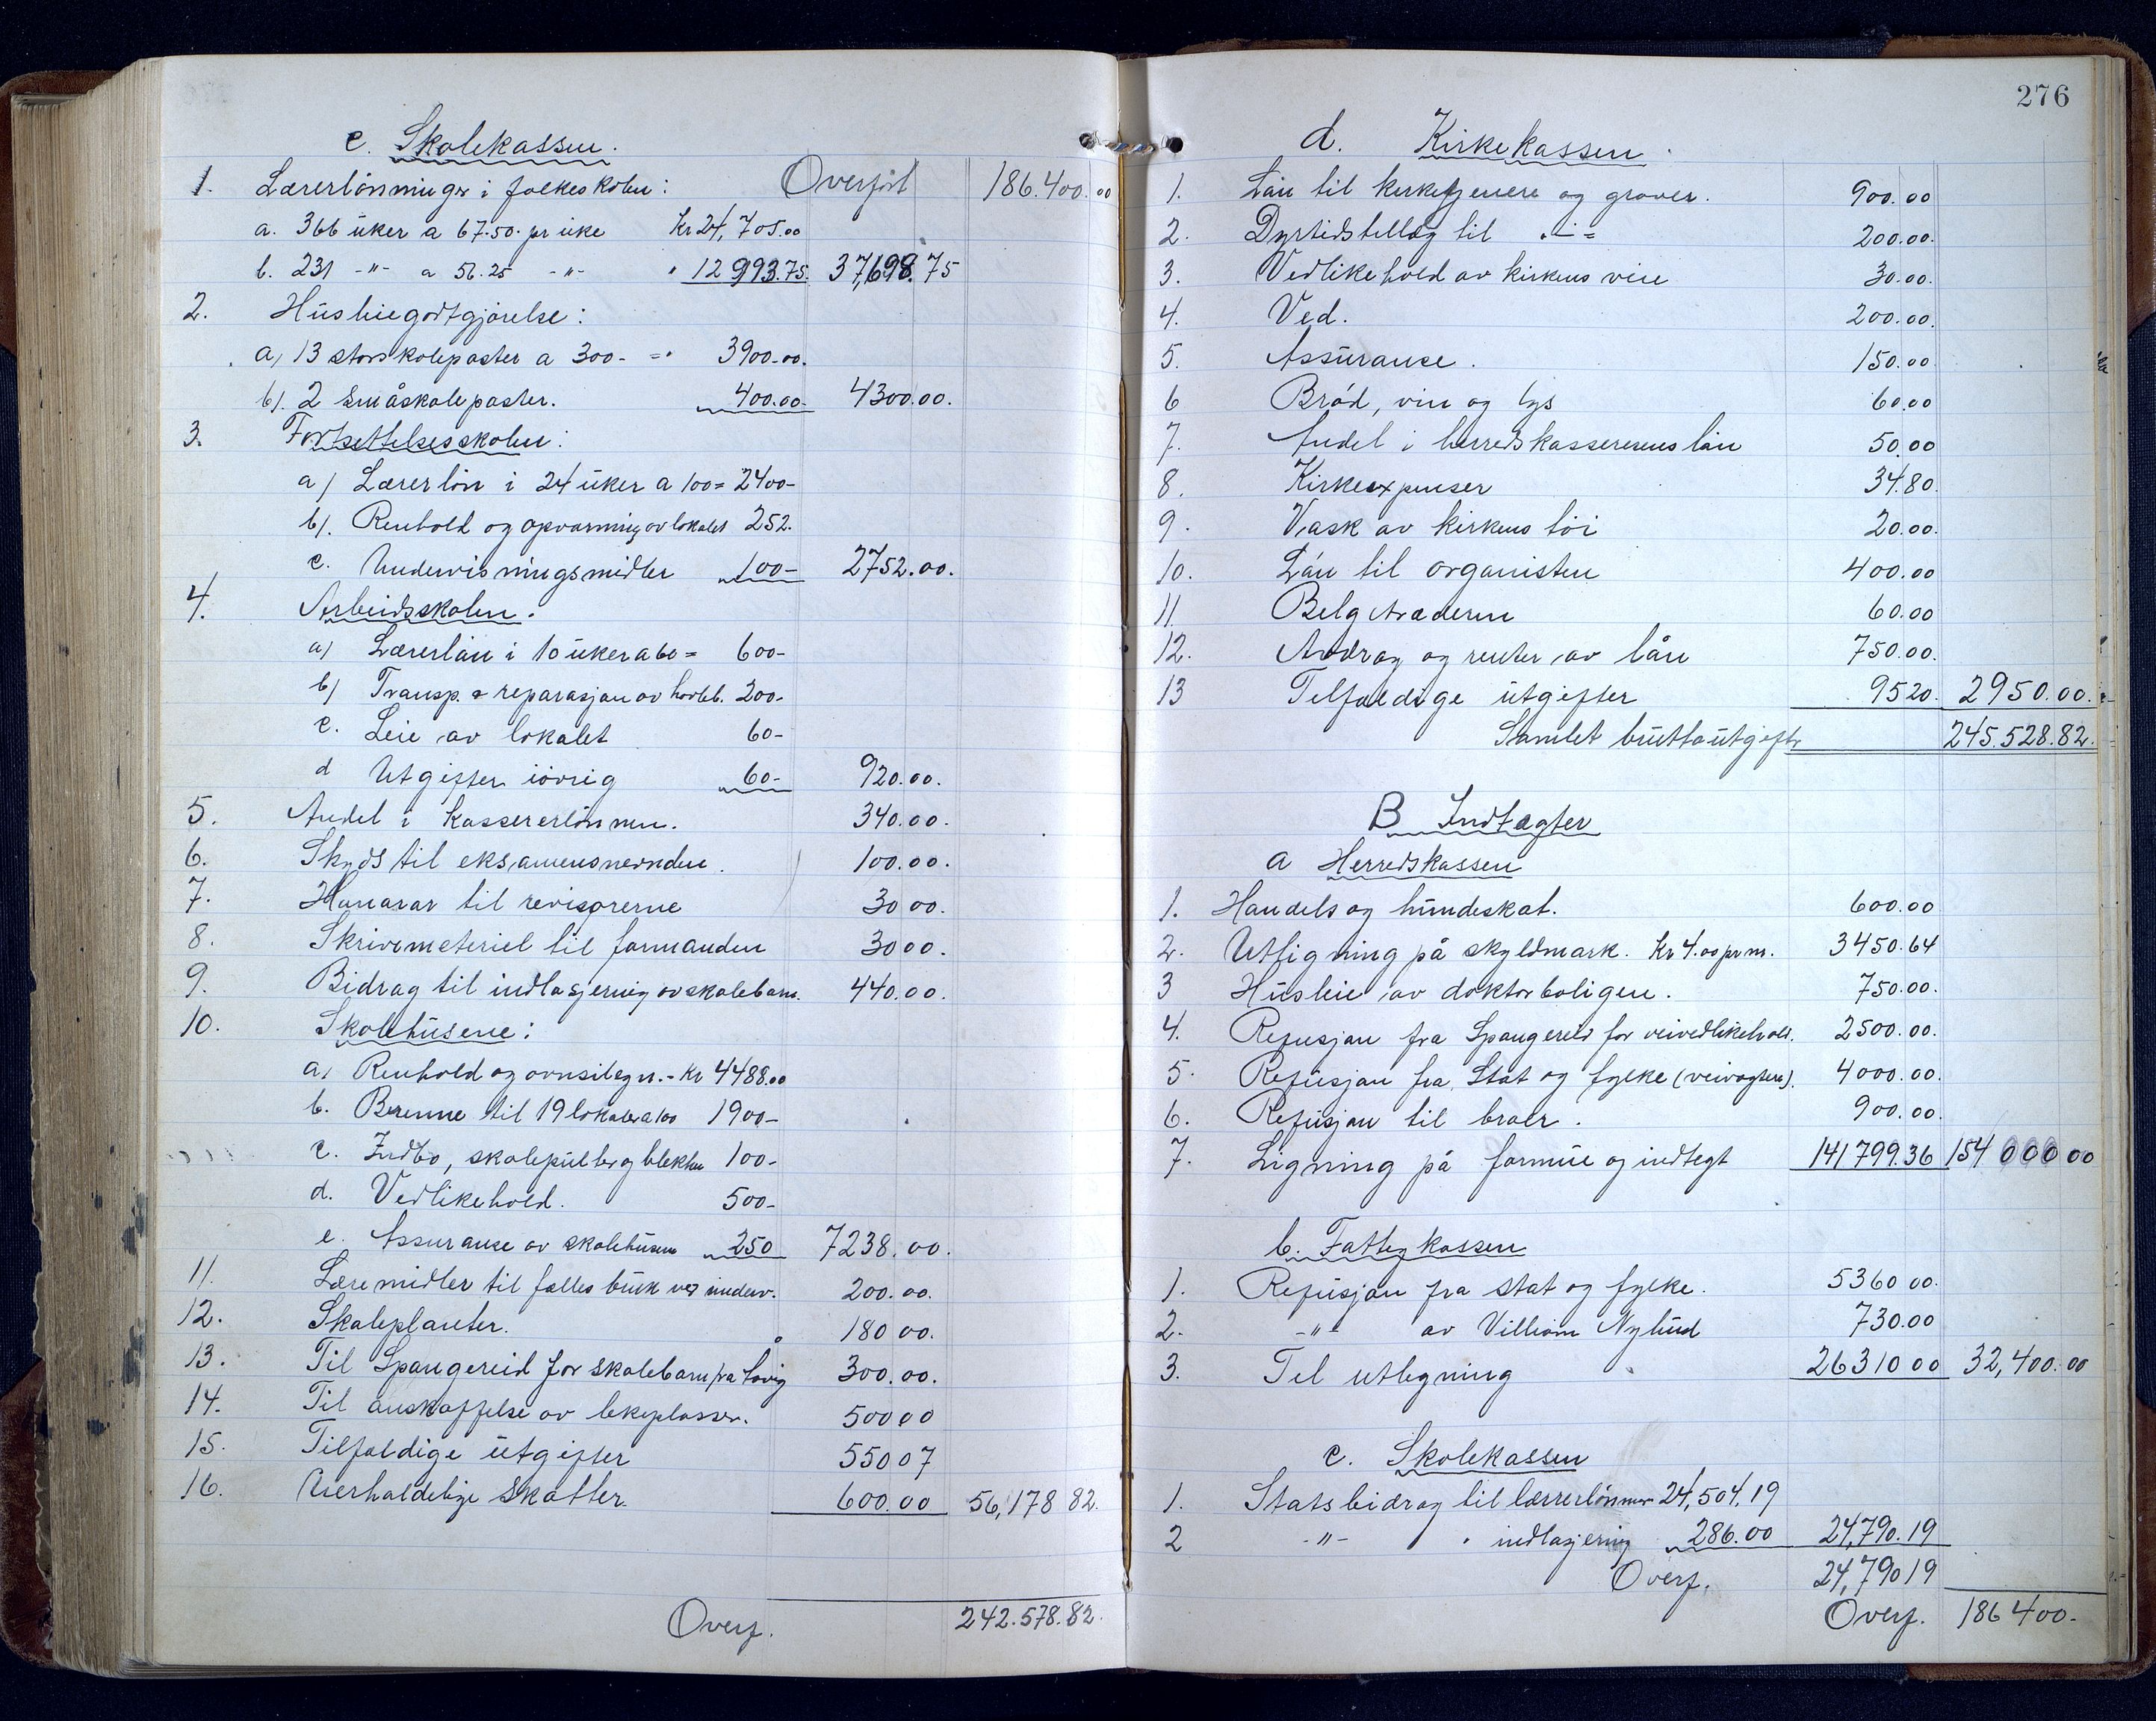 c. Skolekassen.
1. Lærerlönninger i folkeskolen: Overført 186.400.00
a. 366 uker a 67.50. pr uke Kr 24,705.00
b. 231 -"- a 56.25 -"- " 12993.75. 37,698.75
2. Husleiegodtgjørelse:
a) 13 storskoleposter a 300- =" 3900-00.
b). 2 småskoleposter. 400.00- 4300.00.
3. Fortsettelsesskolen:
a) Lærerlön i 24 uker a 100= 2400-
b). Renhold og opvarming av lokalet 252.
c. Undervisningsmidler 100- 2752.00.
4. Arbeidsskolen.
a) Lærerlön i 10 uker a 60= 600-
b) Transp. & reparasjon av høvlb. 200-
c. Leie av lokalet 60-
d Utgifter iövrig 60- 920.00.
5. Andel i Kassererlönnen. 340.00.
6. Skyds til eksamensnevnden. 100.00.
7. Honorar til revisorerne 30 00.
8. Skrivemateriel til formanden 30 00.
9. Bidrag til indlosjering av skolebarn. 440.00.
10. Skolehusene:
a, Renhold og ovnsilegn.- Kr 4488.00
b. Brenne til 19 lokaler a 100 1900-
c. Indbo, skolepulter og blekhus 100-
d. Vedlikehold. 500-
e. Assuranse av skolehusene 250 7238.00.
11. Læremidler til felles bruk ved underv. 200.00.
12. Skoleplanter. 180 00.
13. Til Spangereid for skolebarn fra Åvig 300.00.
14. Til anskaffelse av lekeplasser. 500 00
15. Tilfældige utgifter 550 07
16. Uerholdelige skatter. 600.00 56,178 82.
Overf. 242.578.82.
276
d. Kirkekassen.
1. Lön til kirketjenere og graver. 900.00
2. Dyrtidstillæg til " - " 200.00.
3. Vedlikehold av kirkens vine 30.00.
4. Ved. 200.00.
5. Assuranse. 150.00
6 Bröd, vin og lys 60.00
7. Andel i herredskassererens lön 50.00
8. Kirkeexpenser 34.80.
9. Vask av kirkens töi 20.00.
10. Lön til organisten 400.00
11. Belgtræderen 60.00
12. Avdrag og renter av lån 750.00.
13 Tilfældige utgifter 95 20. 2950.00.
Samlet bruttoutgifter 245.528.82.
B Indtægter
a Herredskassen
1. Handels og hundeskat. 600.00
2. Utligning på skyldmark. Kr 4.00 pr m. 3450.64
3 Husleie av doktorboligen. 750.00.
4. Refusjon fra Spangereid for veivedlikehold. 2500.00.
5. Refusjon fra Stat og fylke (veivogtere). 4000.00.
6. Refusjon til broer. 900.00.
7. Ligning på formue og indtegt 141799.36 154 000 00
b. Fattigkassen
1. Refusjon fra stat og fylke. 5360 00.
2. -"- av Villiam Nylund 730.00
3. Til utligning 26310 00 32,400.00
c. Skolekassen
1. Statsbidrag til lærerlönner 24,504,19
2 -"- " indlosjering 286.00 24,790.19
Overf. 24,790 19
Overf. 186 400.-